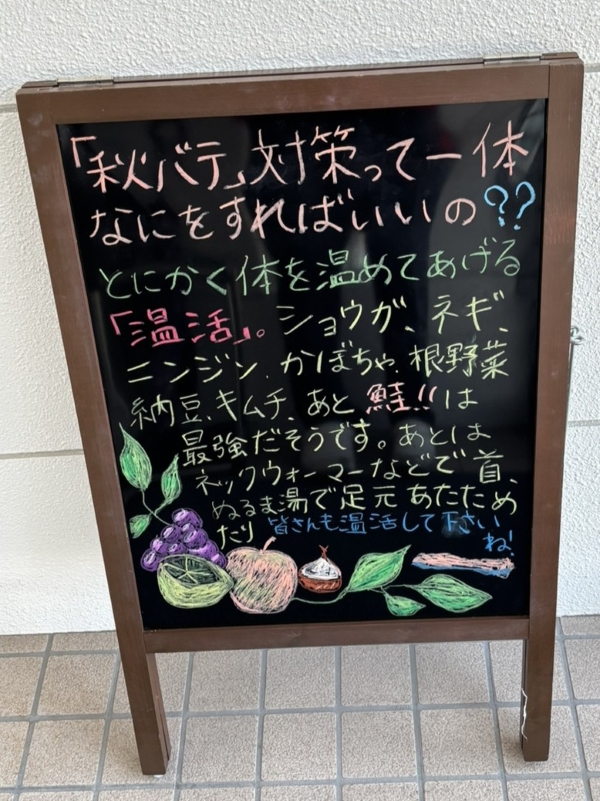 「秋バテ」対策って一体
なにをすればいいの??
とにかく体を温めてあげる
「温活」。ショウガ、ネギ、
ニンジン、かぼちゃ、根野菜
納豆、キムチ、あと、鮭!!は
最強だそうです。あとは
ネックウォーマーなどで首、
ぬるま湯で足元あたため
たり 皆さんも温活して下さい
ね!